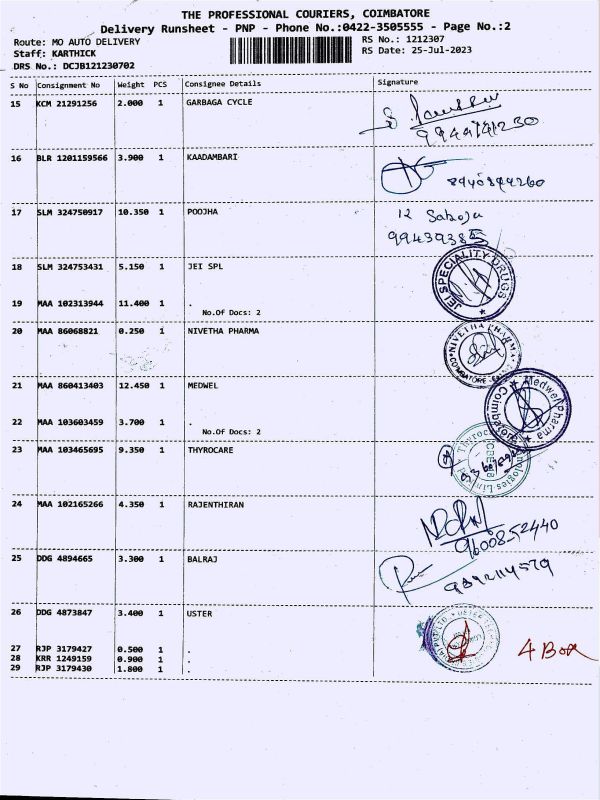 THE PROFESSIONAL COURIERS, COIMBATORE
Delivery Runsheet - PNP - Phone No.:0422-3505555 - Page No.:2
Route: MO AUTO DELIVERY RS No.: 1212307
Staff: KARTHICK RS Date: 25-Jul-2023
DRS No.: DCJB121230702
S No Consignment No Weight PCS Consignee Details Signature
15 KCM 21291256 2.000 1 GARBAGA CYCLE
16 BLR 1201159566 3.900 1 KAADAMBARI
8940844260
17 SLM 324750917 10.350 1 POOJHA
12 Saboja
18 SLM 324753431 5.150 1 JEI SPL
JEI SPECIALITY DRUGS
19 MAA 102313944 11.400 1 .
No.Of Docs: 2
20 MAA 86068821 0.250 1 NIVETHA PHARMA
NIVETHA PHARMA
COIMBATORE
21 MAA 860413403 12.450 1 MEDWEL
Medwel Pharma
Coimbatore
22 MAA 103603459 3.700 1 .
No.Of Docs: 2
23 MAA 103465695 9.350 1 THYROCARE
24 MAA 102165266 4.350 1 RAJENTHIRAN
9600852440
25 DDG 4894665 3.300 1 BALRAJ
26 DDG 4873847 3.400 1 USTER
4 Box
27 RJP 3179427 0.500 1 .
28 KRR 1249159 0.900 1 .
29 RJP 3179430 1.800 1 .